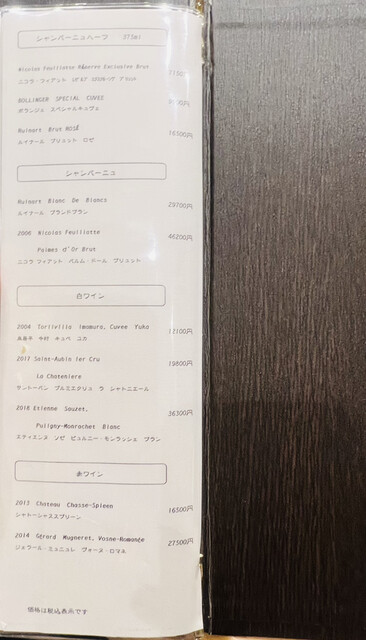 シャンパーニュハーフ 375ml
Nicolas Feuillatte Réserve Exclusive Brut
ニコラ・フィアット
BOLLINGER SPECIAL CUVEE
ボランジェ スペシャルキュヴェ
Ruinart Brut ROSÉ 16500円
ルイナール ブリュット ロゼ
シャンパーニュ
Ruinart Blanc De Blancs 29700円
ルイナール ブランドブラン
2006 Nicolas Feuillatte 46200円
Palmes d'Or Brut
ニコラ フィアット・パルム・ドール ブリュット
白ワイン
2004 Toriivilla Imamura, Cuvee Yuka 12100円
鳥居平 今村 キュベ ユカ
2017 Saint-Aubin 1er Cru 19800円
La Chateniere
サントーバン プルミエクリュ ラ シャトニエール
2018 Etienne Sauzet, 36300円
Puligny-Monrachet Blanc
エティエンヌ ソゼ ピュルニー・モンラッシェ ブラン
赤ワイン
2013 Chateau Chasse-Spleen 16500円
シャトーシャススプリーン
2014 Gérard Mugneret, Vosne-Romanée 27500円
ジェラール・ミュニュレ ヴォーヌ・ロマネ
価格は税込表示です